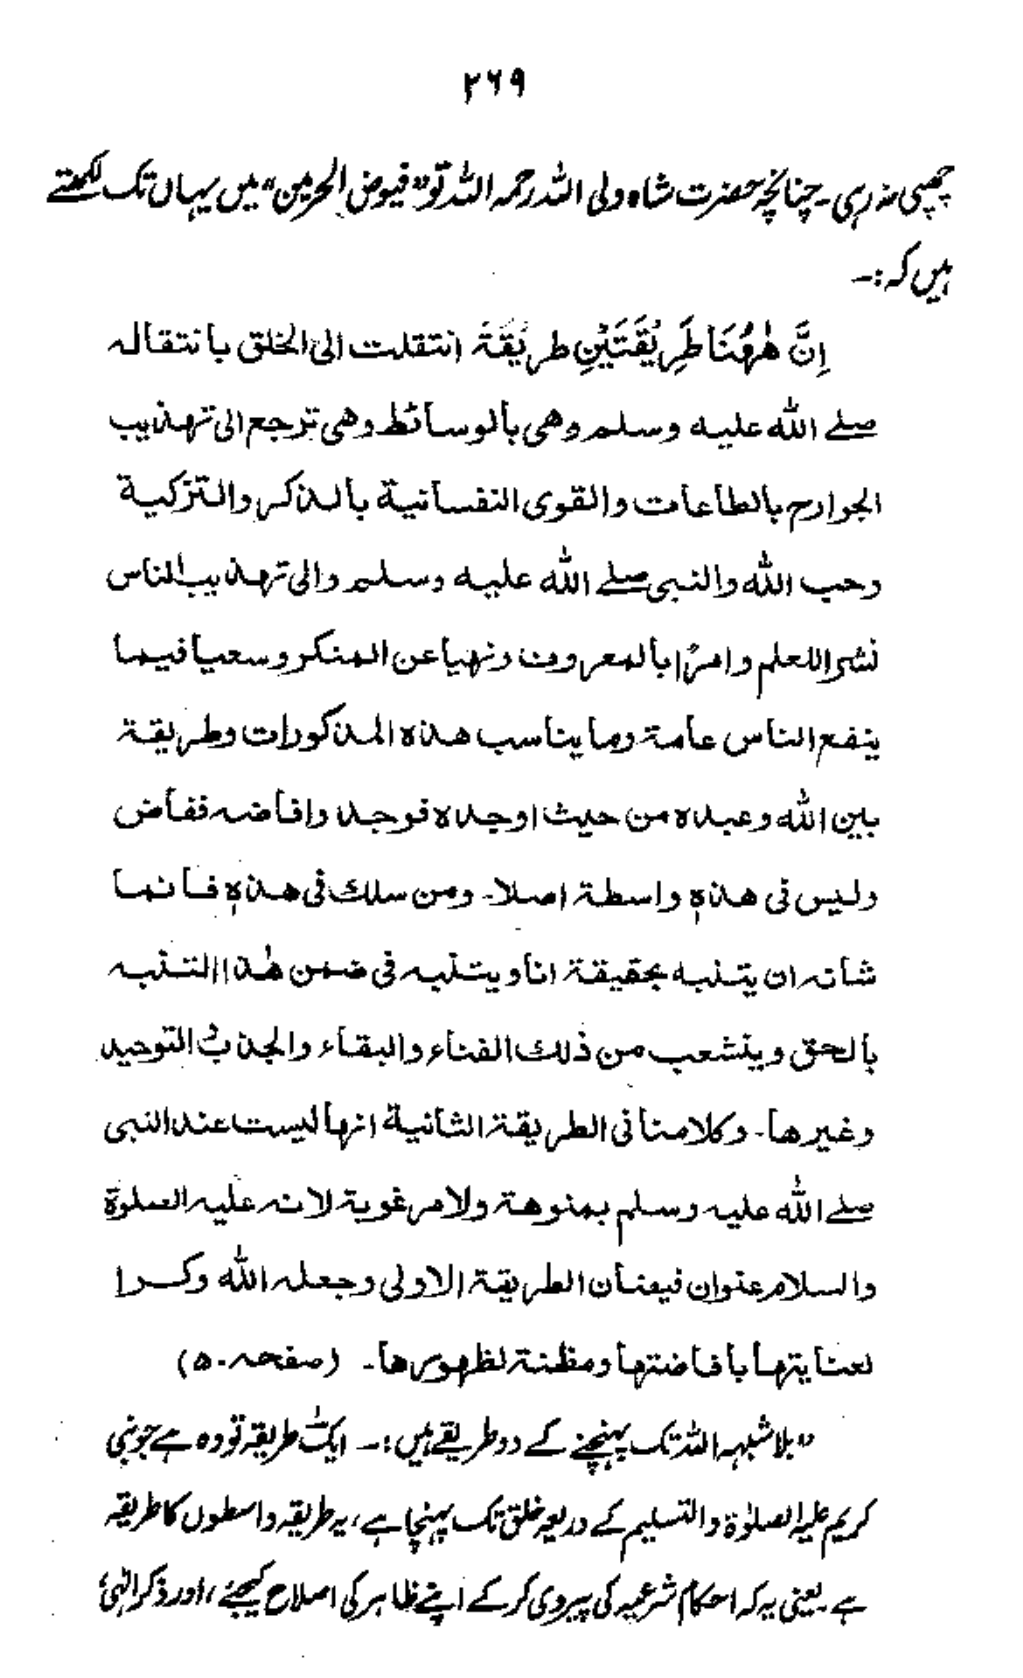 ۲۶۹
چھپی نہ رہی۔ چنانچہ حضرت شاہ ولی اللہ رحمہ اللہ تو "فیوض الحرمین" میں یہاں تک لکھتے
ہیں کہ :۔
اِنَّ هٰهُنَا طَرِیْقَتَیْنِ طریْقَةً انتقلت الی الخلق بانتقاله
صلے الله علیه وسلم وهی بالوسائط وهی ترجع الی تهذیب
الجوارح بالطاعات والقوی النفسانیة بالذکر والتزکیة
وحب الله والنبی صلے الله علیه وسلم والی تهذیب الناس
نشرا للعلم وامرًا بالمعروف ونهیا عن المنکر وسعیا فیما
ینفع الناس عامة وما یناسب هذه المذکورات وطریقة
بین الله وعبده من حیث اوجده فوجد وافاضه ففاض
ولیس فی هذہٖ واسطة اصلا۔ ومن سلک فی هذہٖ فانما
شانه ان یتنبه بحقیقة انا ویتنبه فی ضمن هٰذا التنبه
بالحق وینشعب من ذٰلک الفناء والبقاء والجذب والتوحید
وغیرها۔ وکلامنا فی الطریقة الثانیة انها لیست عند النبی
صلے الله علیه وسلم بمنوهة ولا مرغوبة لانه علیه الصلوٰة
والسلام عنوان فیضان الطریقة الاولی وجعله الله وکرا
لعنایتها بافاضتها ومظنة لظهورها۔ (صفحہ ۵۰)
"بلاشبہہ اللہ تک پہنچنے کے دو طریقے ہیں :۔ ایک طریقہ تو وہ ہے جو نبی
کریم علیہ الصلوٰة والتسلیم کے ذریعہ خلق تک پہنچا ہے، یہ طریقہ واسطوں کا طریقہ
ہے۔ یعنی یہ کہ احکام شرعیہ کی پیروی کر کے اپنے ظاہر کی اصلاح کیجئے، اور ذکر الٰہی